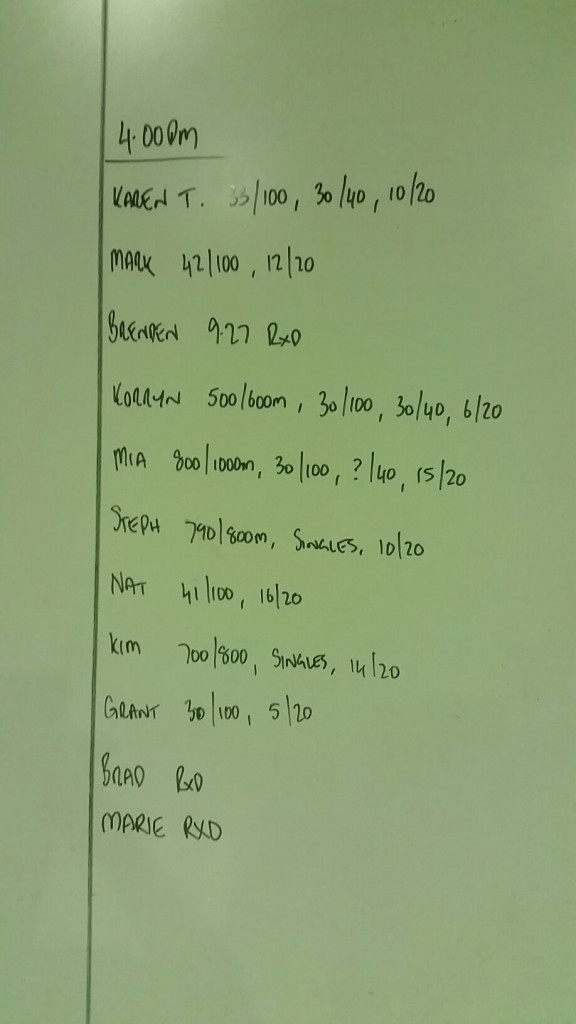 4.00pm
KAREN T. 33/100, 30/40, 10/20
MARK 42/100, 12/20
BRENDEN 9.27 RxD
KORRYN 500/600m, 30/100, 30/40, 6/20
MIA 800/1000m, 30/100, ?/40, 15/20
STEPH 790/800m, SINGLES, 10/20
NAT 41/100, 16/20
KIM 700/800, SINGLES, 14/20
GRANT 30/100, 5/20
BRAD RxD
MARIE RXD